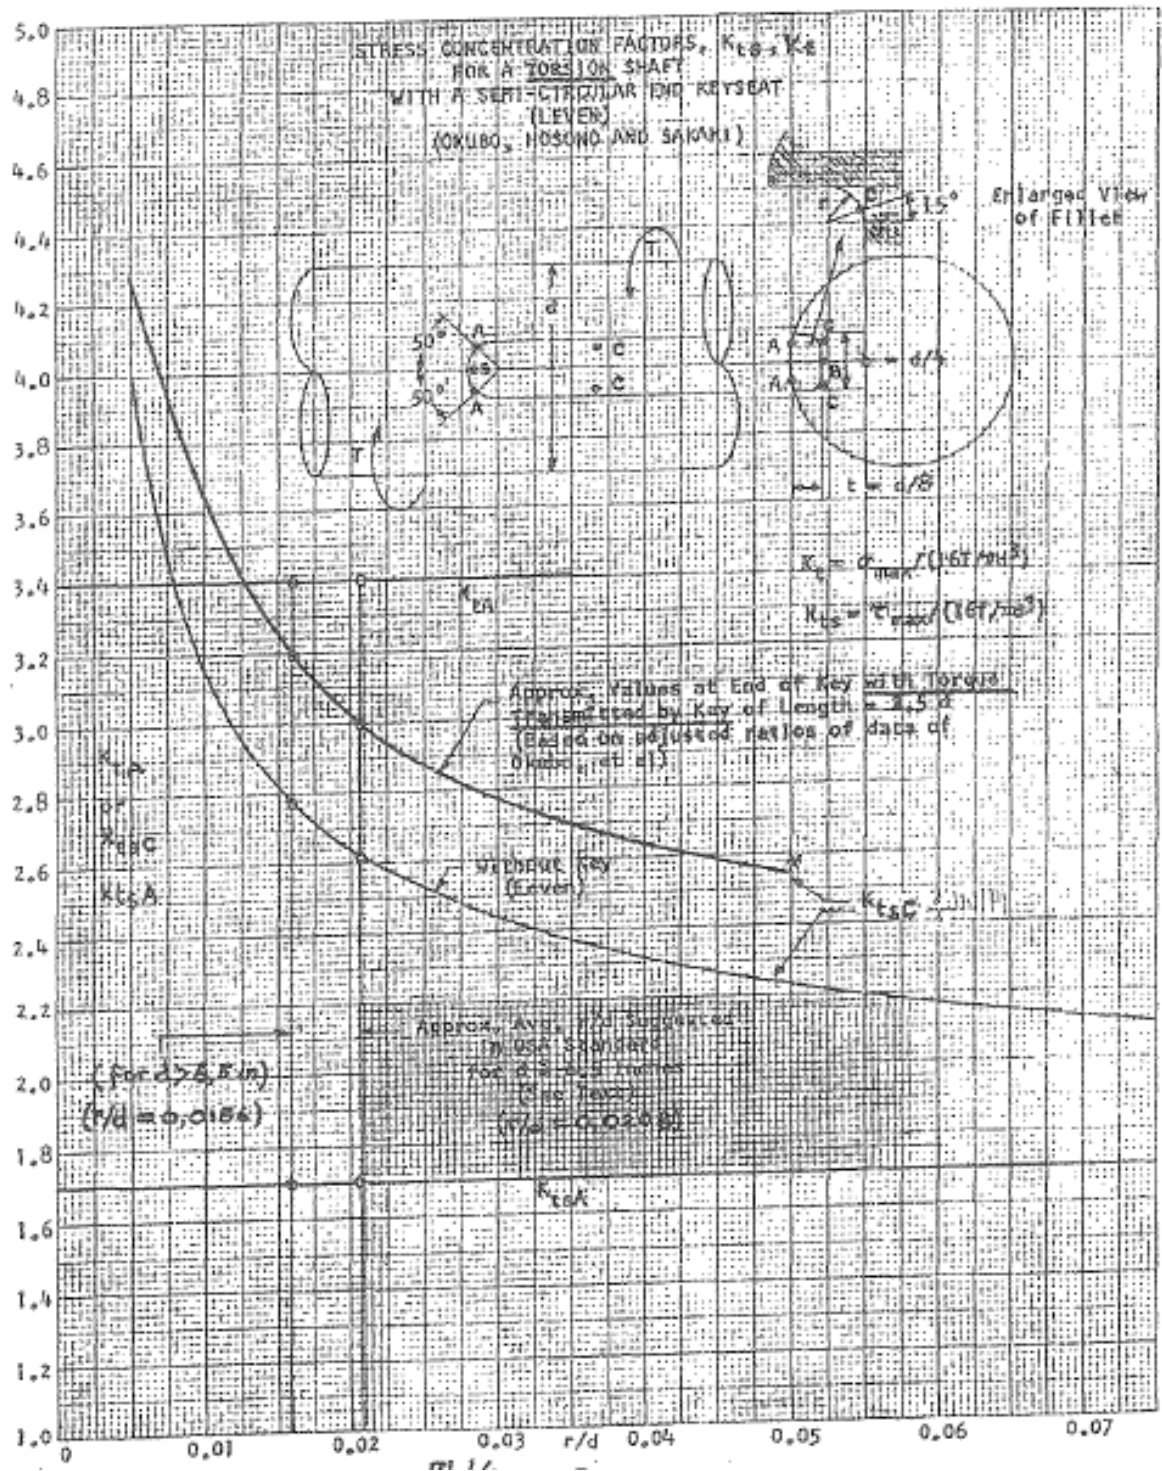 STRESS CONCENTRATION FACTORS, Kts, Kt
FOR A TORSION SHAFT
WITH A SEMI-CIRCULAR END KEYSEAT
(LEVEN)
(OKUBO, HOSONO AND SAKAKI)
5.0
4.8
4.6
4.4
4.2
4.0
3.8
3.6
3.4
3.2
3.0
2.8
2.6
2.4
2.2
2.0
1.8
1.6
1.4
1.2
1.0
Enlarged View
of Fillet
r
15°
T
d
50°
50°
A
A
C
C
T
A
A
B
C
b = d/4
t = d/8
Kt = σmax/(16T/πd³)
Kts = τmax/(16T/πd³)
KtA
Approx. Values at End of Key with Torque
Transmitted by Key of Length = 2.5 d
(Based on adjusted ratios of data of
Okubo, et al)
KtA
or
KtsC
KtsA
Without Key
(Leven)
KtsC
Approx. Avg. r/d Suggested
in USA Standard
for d ≤ 6.5 inches
(See Text)
(r/d = 0.0208)
(for d > 6.5 in)
(r/d = 0.0156)
KtsA
0
0.01
0.02
0.03
r/d
0.04
0.05
0.06
0.07